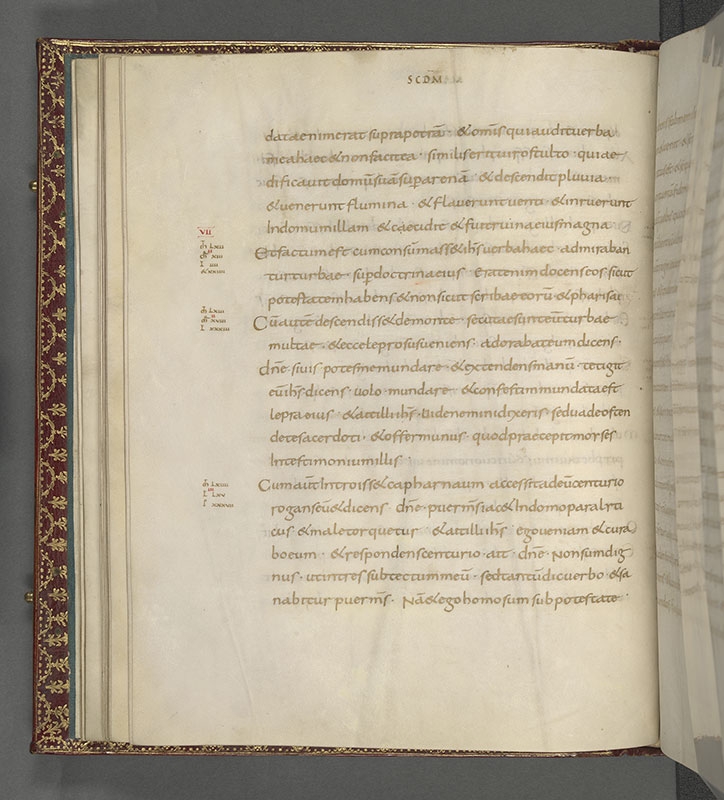 SCDM̄
data enim erat supra petrā · & omis qui audit verba
mea haec & non facit ea · similis erit viro stulto · qui ae
dificavit domū suā sup arenā · & descendit pluvia ·
& venerunt flumina · & flaverunt venti · & inruerunt
In domum illam · & caecidit · & fuit ruina eius magna
VII
Et factum est cum consummass& ihs verba haec · admiraban
tur turbae · sup doctrina eius · Erat enim docens eos sicut
potestatem habens & non sicut scribae eorū & pharisaei
m̄ LXIII
Cū autē descendiss& de monte · secutae sunt eū turbae
multae · & ecce leprosus veniens · adorabat eum dicens ·
dn̄e · si vis potes me mundare · & extendens manū · tetigit
eū ihs dicens · volo · mundare · & confestim mundata est
lepra eius · & ait illi ihs · vide nemini dixeris · sed vade osten
de te sacerdoti · & offer munus · quod praecepit moyses
In testimonium illis ·
Cum aūt Introiss& capharnaum · accessit ad eū centurio
rogans eū & dicens · dn̄e · puer m̄s iac& In domo paraliti
cus & male torquetur · & ait illi ihs · ego veniam & cura
bo eum · & respondens centurio · ait · dn̄e · Non sum dig
nus · ut intres sub tectum meū · sed tantū dic verbo · & sa
nabitur puer m̄s · Nā & ego homo sum sub potestate ·